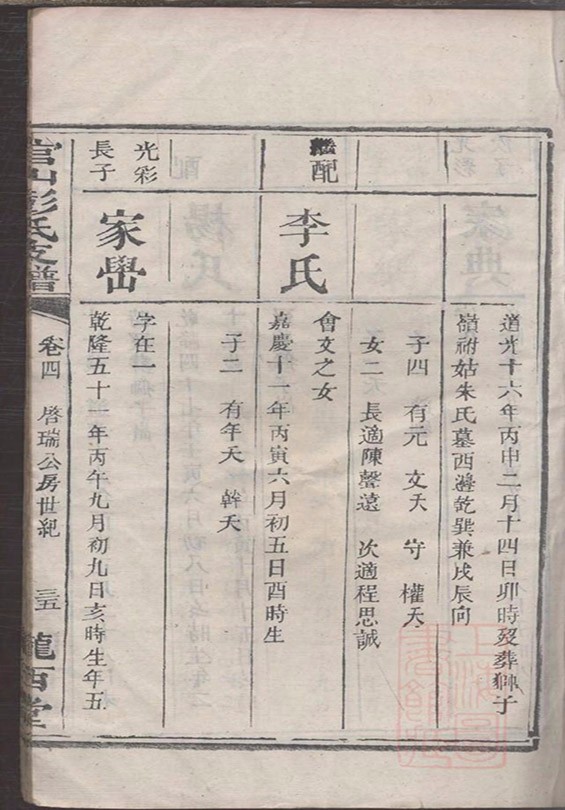 道光十六年丙申二月十四日卯時歿葬獅子
嶺祔姑朱氏墓西邊乾巽兼戌辰向
子四 有元 文夭 守 權夭
女二 長適陳聲遠 次適程思誠
配
李氏
會文之女
嘉慶十一年丙寅六月初五日酉時生
子二 有年夭 幹夭
光彩
長子
家嶨
字在一
乾隆五十一年丙午九月初九日亥時生年五
官山彭氏支譜
卷四 啓瑞公房世紀 三五
隴西堂
上海圖
書館藏